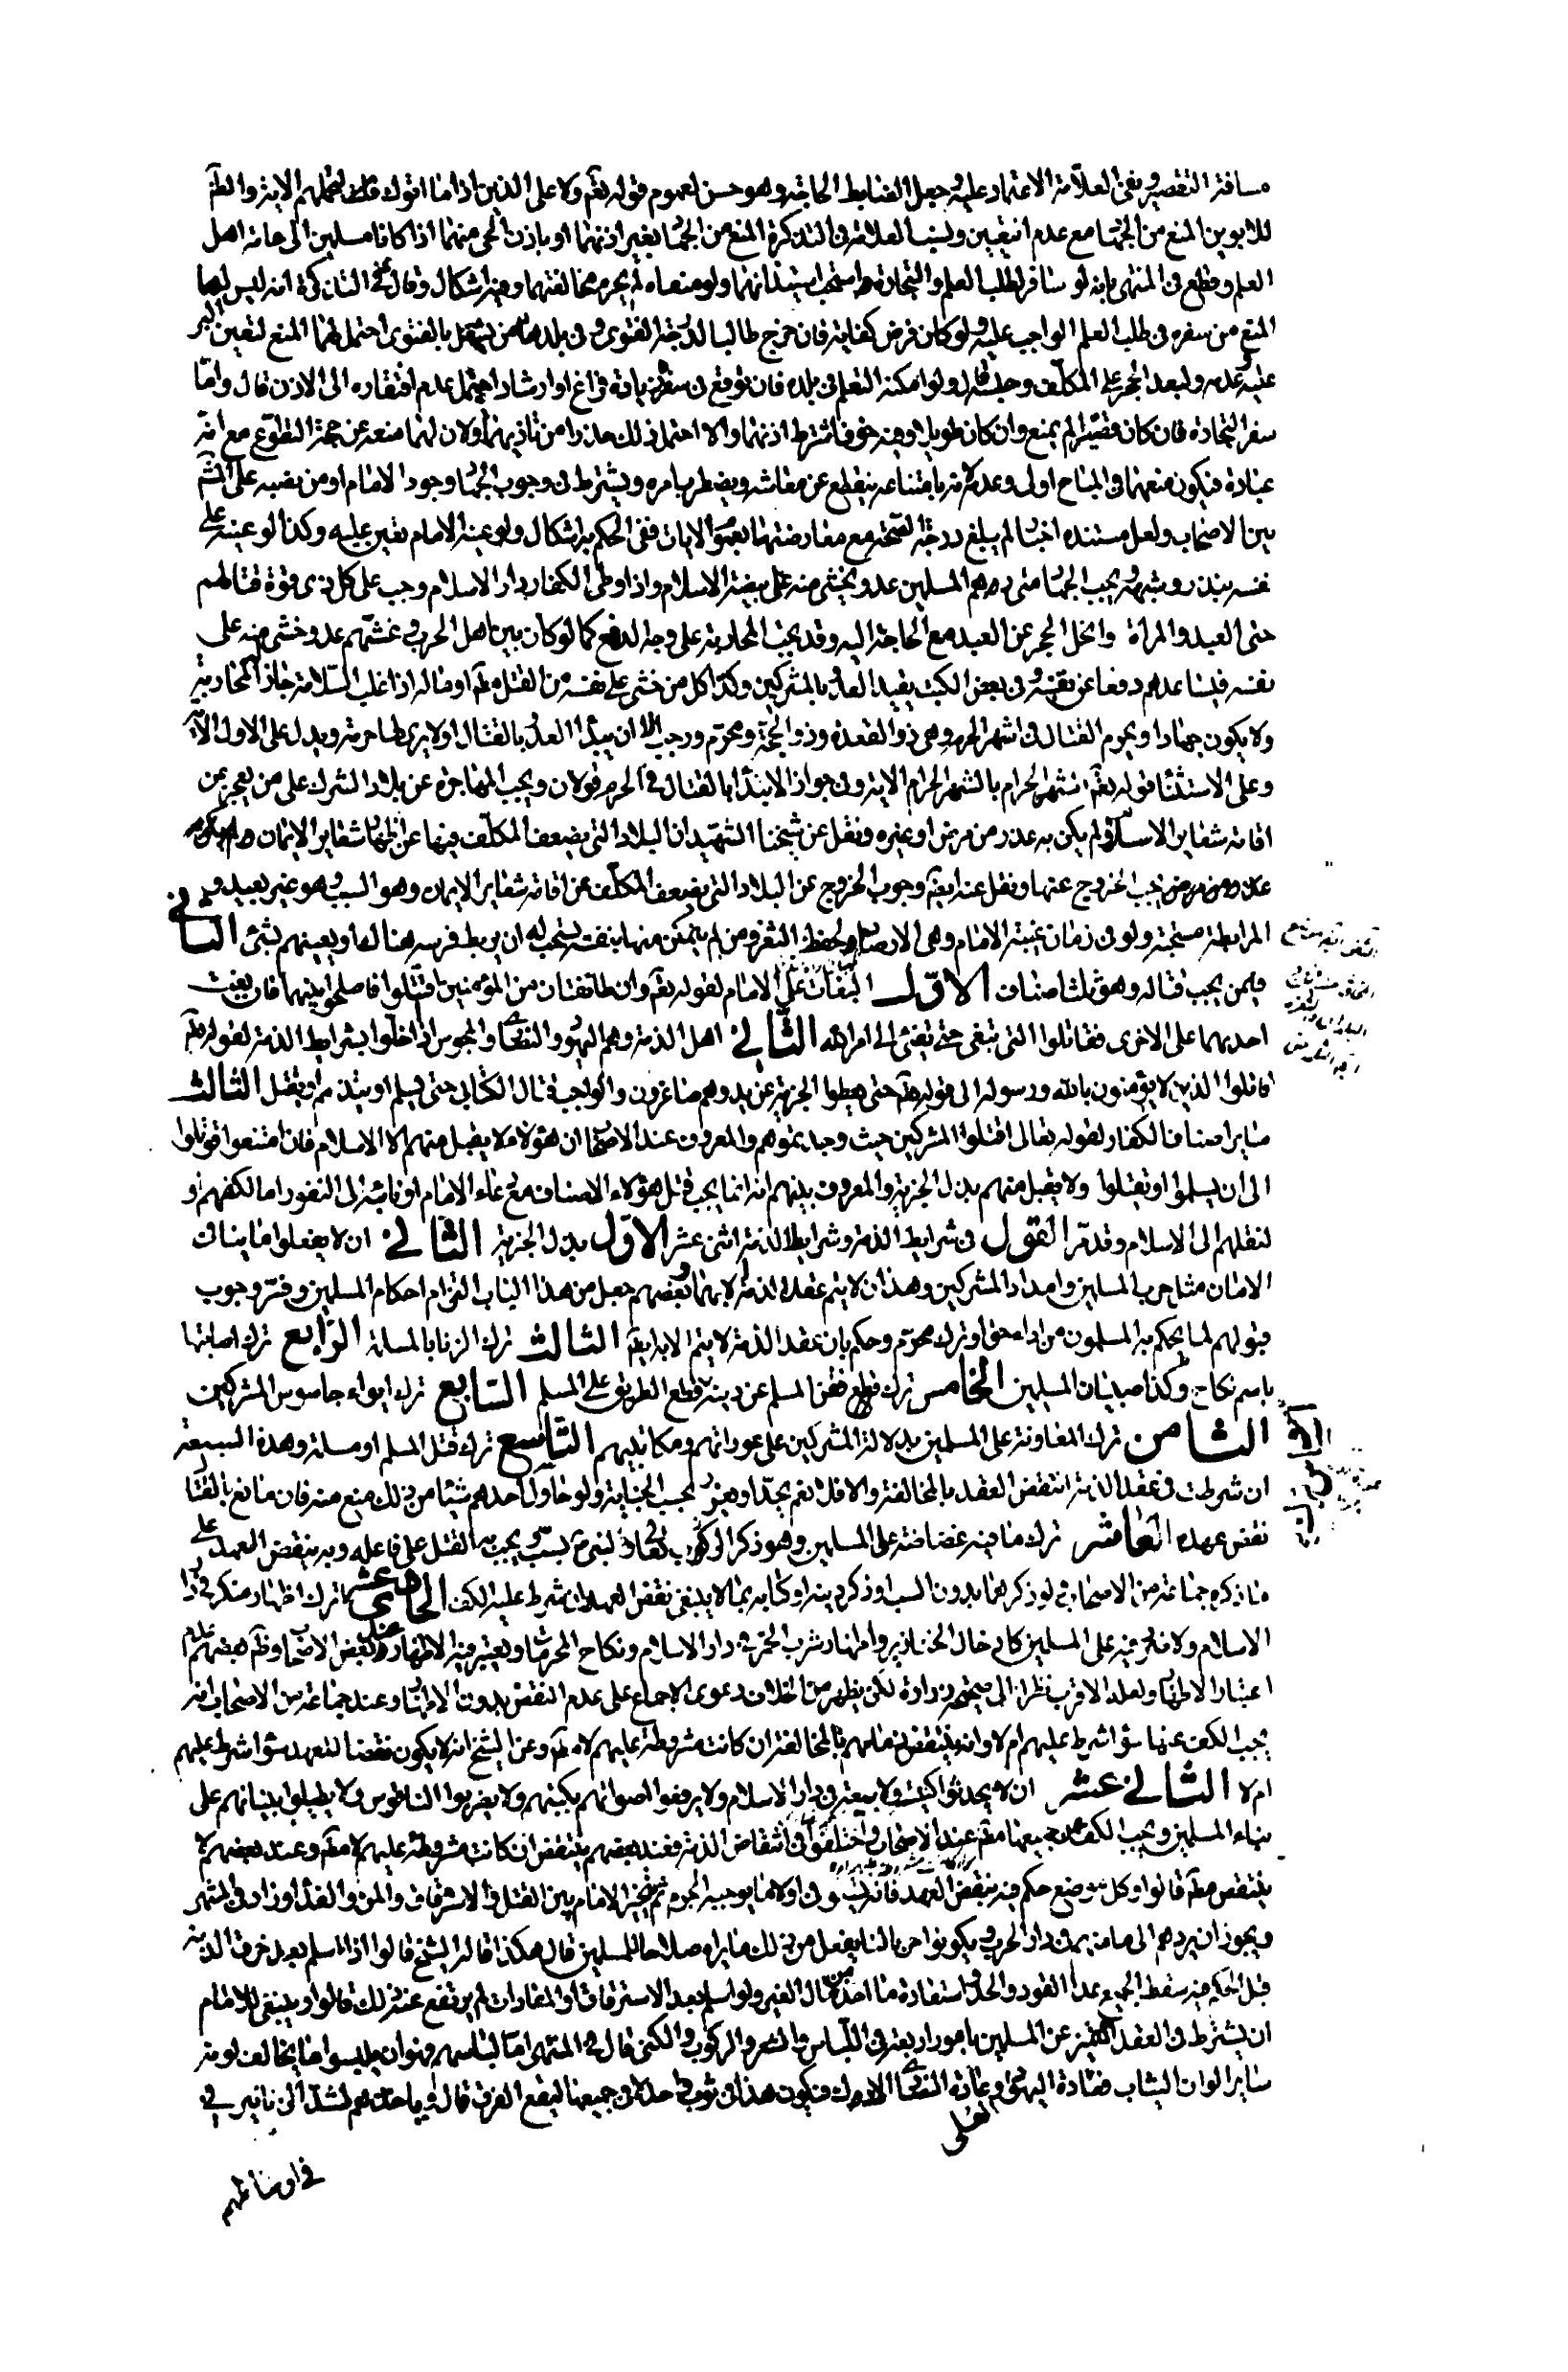 مسافة التقصير ونفى العلامة الاعتماد عليه وجعل الضابط الحاجة وهو حسن لعموم قوله تعم ولا على الذين اذا ما اتوك لتحملهم الاية والظم
للابوين المنع من الجهاد مع عدم التعيين ونسب العلامة في التذكرة المنع من الجهاد بغير اذنهما او باذن الحى منهما اذا كانا مسلمين الى عامة اهل
العلم وقطع في المنتهى بانه لو سافر لطلب العلم والتجارة استحب استيذانهما ولو منعاه لم يحرم مخالفتهما وفيه اشكال وقال في التذكرة انه ليس لهما
المنع من سفره في طلب العلم الواجب عليه ولو كان فرض كفاية فان خرج طالبا لدرجة الفتوى وفي بلده من يشتغل بالفتوى احتمل لهما المنع لتعين البر
عليه وعدمه ولبعد الحجر على المكلف وحبسه ولو امكنه التعلم في بلده فان توقع في سفره زيادة فراغ او ارشاد احتمل عدم افتقاره الى الاذن قال واما
سفر التجارة فان كان قصيرا لم يمنع وان كان طويلا وفيه خوف اشترط اذنهما والا احتمل ذلك حذرا من تاذيهما ولان لهما منعه عن حجة التطوع مع انه
عبادة فيكون منعهما في المباح اولى وعدمه لانه بامتناعه ينقطع عن معاشه ويضطرب امره ويشترط في وجوب الجهاد وجود الامام او من نصبه على المشهم
بين الاصحاب ولعل مستنده اخبار لم يبلغ درجة الصحة مع معارضتها بعموم الايات ففي الحكم به اشكال ولو عينه الامام تعين عليه وكذا لو عينه على
نفسه بنذر وشبهه ويجب الجهاد متى دهم المسلمين عدو يخشى منه على بيضة الاسلام واذا وطى الكفار دار الاسلام وجب على كل ذى قوة قتالهم
حتى العبد والمراة وانحل الحجر عن العبد مع الحاجة اليه وقد يجب المحاربة على وجه الدفع كما لو كان بين اهل الحرب وغشيهم عدو خشى منه على
نفسه فيساعدهم دفعا عن نفسه وفي بعض الكتب تقييد العدو بالمشركين وكذا كل من خشى على نفسه من القتل مطم او ماله اذا غلب السلامة جاز المحاربة
ولا يكون جهادا ويحرم القتال في اشهر الحرم وهى ذو القعدة وذو الحجة ومحرم ورجب الا ان يبدأ العدو بالقتال او لا يرى لها حرمة ويدل على الاول الاية
وعلى الاستثناء قوله تعم الشهر الحرام بالشهر الحرام الاية وفي جواز الابتدا بالقتال في الحرم قولان ويجب المهاجرة عن بلاد الشرك على من يعجز عن
اقامة شعاير الاسلام ولم يكن به عذر من مرض او غيره ونقل عن شيخنا الشهيد ان البلاد التى يضعف المكلف فيها عن اظهار شعاير الايمان
يجب الخروج عنها ونقل عنه ايضم وجوب الخروج عن البلاد التى يضعف المكلف عن اقامة شعاير الايمان وهو السب وهو غير بعيد
المرابطة مستحبة ولو في زمان غيبة الامام وهى الارصاد لحفظ الثغر ومن لم يتمكن منها بنفسه يستحب له ان يربط فرسه هناك او يعينهم بشئ الثانى
فيمن يجب قتاله وهو ثلثة اصناف الاول البغاة على الامام لقوله تعم وان طائفتان من المؤمنين اقتتلوا فاصلحوا بينهما فان بغت
احديهما على الاخرى فقاتلوا التى تبغى حتى تفئ الى امر الله الثانى اهل الذمة وهم اليهود والنصارى والمجوس اذا اخلوا بشرايط الذمة لقوله تعم
قاتلوا الذين لا يؤمنون بالله ورسوله الى قوله تعم حتى يعطوا الجزية عن يد وهم صاغرون والواجب قتال الكتابى حتى يسلم او يتذمم او يقتل الثالث
ساير اصناف الكفار لقوله تعالى اقتلوا المشركين حيث وجدتموهم والمعروف عند الاصحاب ان هؤلاء لا يقبل منهم الا الاسلام فان امتنعوا قوتلوا
الى ان يسلموا او يقتلوا ولا يقبل منهم بذل الجزية والمعروف بينهم انه انما يجب قتل هؤلاء الاصناف مع دعاء الامام او نائبه الى النفور اما لكفهم او
لنقلهم الى الاسلام وقد مر القول في شرايط الذمة وشرايط الذمة اثنى عشر الاول بذل الجزية الثانى ان لا يفعلوا ما ينافي
الامان مثل حرب المسلمين وامداد المشركين وهذان لا يتم عقد الذمة الا بهما وبعضهم جعل من هذا الباب التزام احكام المسلمين وفسر وجوب
قبولهم لما يحكم به المسلمون من اداء حق او ترك محرم وحكم بان عقد الذمة لا يتم الا به ايضم الثالث ترك الزنا بالمسلمة الرابع ترك اصابتها
باسم نكاح وكذا صبيان المسلمين الخامس ترك فتن المسلم عن دينه وقطع الطريق على المسلم السابع ترك ايواء جاسوس المشركين
الثامن ترك المعاونة على المسلمين بدلالة المشركين على عوراتهم ومكاتبتهم التاسع ترك قتل المسلم او مسلمة وهذه السبعة
ان شرطت في عقد الذمة انتقض العقد بالمخالفة والا فلا نعم يحد او يعزر بحسب الجناية ولو حاول احدهم شيئا من ذلك منع منه فان مانع بالقتال
نقض عهده العاشر ترك ما فيه غضاضة على المسلمين وهو ذكر الرب تعالى او النبى ص بسب ويجب به القتل على فاعله وبه ينقض العهد على
ما ذكره جماعة من الاصحاب ولو ذكرهما بدون السب او ذكر دينه او كتابه بما لا ينبغى نقض العهد ان شرط عليه الكف الحادى عشر ترك اظهار منكر في دار
الاسلام ولا ضرر فيه على المسلمين كادخال الخنازير واظهار شرب الخمر في دار الاسلام ونكاح المحرمات ويعتبر فيه الاظهار عند بعض الاصحاب وظم بعضهم عدم
اعتبار الاظهار ولعله الاقرب نظرا الى صحيحة زرارة لكن يظهر من الخلاف دعوى الاجماع على عدم النقض بدون الاظهار وعند جماعة من الاصحاب انه
يجب الكف عنها سواء شرط عليهم ام لا وانه ينتقض ذمامهم بالمخالفة ان كانت مشروطة عليهم لا مطم وعن الشيخ انه لا يكون نقضا للعهد سواء شرط عليهم
ام لا الثانى عشر ان لا يحدثوا كنيسة ولا بيعة في دار الاسلام ولا يرفعوا اصواتهم بكتبهم ولا يضربوا الناقوس ولا يطيلوا بنيانهم على
بناء المسلمين ويجب الكف عن جميعها مطم عند الاصحاب واختلفوا في انتقاض الذمة فعند بعضهم ينتقض ان كانت مشروطة عليهم لا مطم وعند بعضهم لا
ينتقض مطم قالوا وكل موضع حكم فيه بنقض العهد فانه يستوفى اولا ما يوجبه الجرم ثم يتخير الامام بين القتل والاسترقاق والمن والفداء وزاد في المنتهى
ويجوز ان يردهم الى مامنهم في دار الحرب ويكونوا حربا لنا يفعل من ذلك ما يراه صلاحا للمسلمين قال هكذا قاله الشيخ قالوا اذا اسلم بعد خرق الذمة
قبل الحكم فيه سقط الجميع عدا القود والحد واستعادة ما اخذ من مال الغير ولو اسلم بعد الاسترقاق او المفادات لم يرتفع عنه ذلك قالوا وينبغى للامام
ان يشترط في العقد التميز عن المسلمين بامور اربعة في اللباس والشعر والركوب والكنى قال في المنتهى اما لباسهم فهو ان يلبسوا ما يخالف لونه
ساير الوان الثياب فعادة اليهود العسلى وعادة النصارى الادكن فيكون هذا في ثوب واحد لا في جميعها ليقع الفرق قال وياخذهم بشد الزنانير في
في اوساطهم